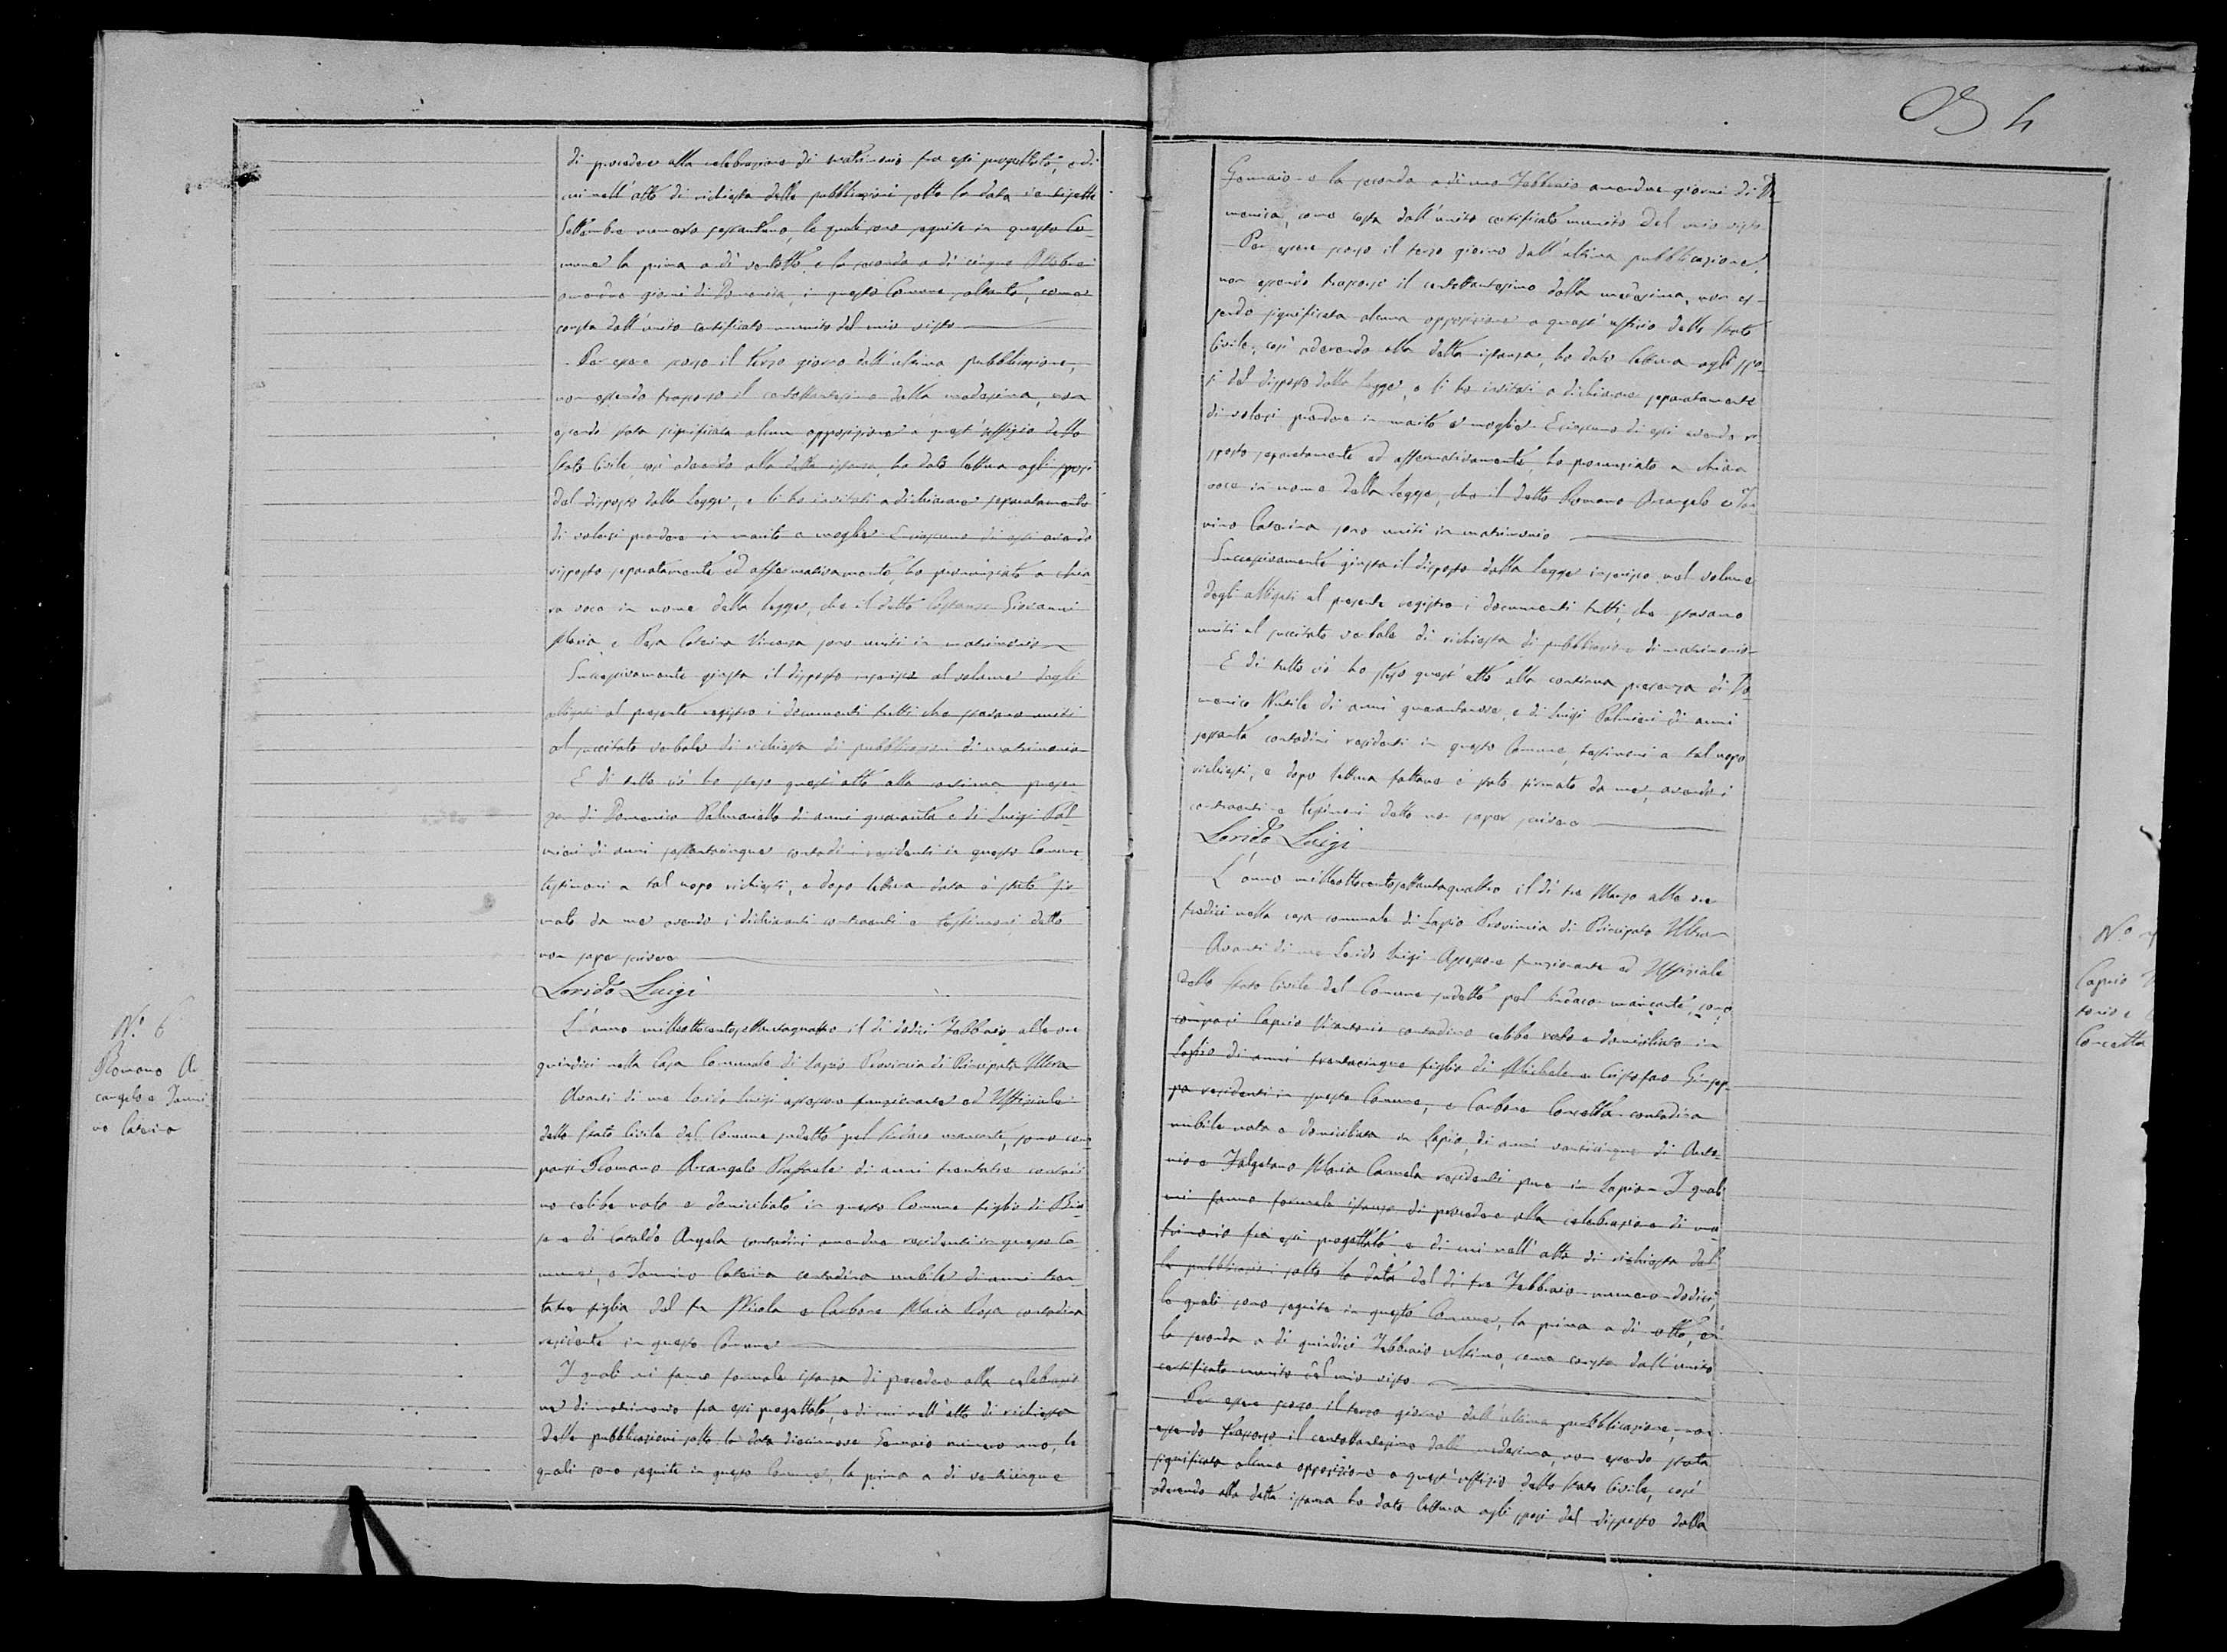 di procedere alla celebrazione di matrimonio fra essi progettato, e di
cui nell'atto di richiesta delle pubblicazioni sotto la data ventisette
Settembre numero sessantuno, le quali sono seguite in questo Co-
mune la prima a dì ventotto, e la seconda a dì cinque Ottobre
amendue giorni di Domenica, in questo Comune soltanto, come
consta dall'unito certificato munito del mio visto
Per essere scorso il terzo giorno dall'ultima pubblicazione,
non essendo trascorso il centottantesimo dalla medesima, non
essendo stata significata alcuna opposizione a quest'uffizio dello
Stato Civile, così aderendo alla detta istanza, ho dato lettura agli sposi
del disposto dalla legge, e li ho invitati a dichiarare separatamente
di volersi prendere in marito e moglie. E ciascuno di essi avendo
risposto separatamente ed affermativamente, ho pronunziato a chia-
ra voce in nome della legge, che il detto Costanzo Giovanni
Maria, e Pesa Caterina Vincenza sono uniti in matrimonio
Successivamente giusta il disposto inserisco al volume degli
allegati al presente registro i documenti tutti che stavano uniti
al succitato verbale di richiesta di pubblicazioni di matrimonio
E di tutto ciò ho steso quest'atto alla continua presen-
za di Domenico Palmariello di anni quaranta e di Luigi Pal-
mieri di anni sessantacinque contadini residenti in questo Comune
testimoni a tal uopo richiesti, e dopo lettura data è stato fir-
mato da me avendo i dichiaranti contraenti e testimoni detto
non saper scrivere
Lorido Luigi
N.o 6
Romano Ar-
cangelo e Janni-
no Caterina
L'anno milleottocentosettantaquattro il dì dodici Febbraio alle ore
quindici nella Casa Comunale di Lapio Provincia di Principato Ultra
Avanti di me Lorido Luigi assessore funzionante ed Uffiziale
dello Stato Civile del Comune sudetto pel Sindaco mancante, sono com-
parsi Romano Arcangelo Raffaele di anni trentatre contadi-
no celibe nato e domiciliato in questo Comune figlio di Bia-
se e di Cataldo Angela contadini amendue residenti in questo Co-
mune, e Jannino Caterina contadina nubile di anni tren-
tatre figlia del fu Nicola e Carbone Maria Rosa contadina
residente in questo Comune
I quali mi fanno formale istanza di procedere alla celebrazio-
ne di matrimonio fra essi progettato, e di cui nell'atto di richiesta
delle pubblicazioni sotto la data diecinnove Gennaio numero uno, le
quali sono seguite in questo Comune, la prima a dì venticinque
4
Gennaio e la seconda a dì uno Febbraio amendue giorni di Do-
menica, come costa dall'unito certificato munito del mio visto
Per essere scorso il terzo giorno dall'ultima pubblicazione,
non essendo trascorso il centottantesimo dalla medesima, non es-
sendo significata alcuna opposizione a quest'uffizio dello Stato
Civile, così aderendo alla detta istanza, ho dato lettura agli spo-
si del disposto dalla legge, e li ho invitati a dichiarare separatamente
di volersi prendere in marito e moglie. E ciascuno di essi avendo ri-
sposto separatamente ed affermativamente, ho pronunziato a chiara
voce in nome della legge, che il detto Romano Arcangelo e Jan-
nino Caterina sono uniti in matrimonio
Successivamente giusta il disposto dalla legge inserisco nel volume
degli allegati al presente registro i documenti tutti, che stavano
uniti al succitato verbale di richiesta di pubblicazioni di matrimonio
E di tutto ciò ho steso quest'atto alla continua presenza di Do-
menico Nutile di anni quarantanove, e di Luigi Palmieri di anni
sessanta contadini residenti in questo Comune, testimoni a tal uopo
richiesti, e dopo lettura fattane è stato firmato da me, avendo i
contraenti e testimoni detto non saper scrivere
Lorido Luigi
L'anno milleottocentosettantaquattro il dì tre Marzo alle ore
tredici nella casa comunale di Lapio Provincia di Principato Ultra
Avanti di me Lorido Luigi Assessore funzionante ed Uffiziale
dello Stato Civile del Comune sudetto pel Sindaco mancante, sono
comparsi Caprio Vitantonio contadino celibe nato e domiciliato in
Lapio di anni trentacinque figlio di Michele e Cristofaro Giusep-
pa residenti in questo Comune, e Carbone Concetta contadina
nubile nata e domiciliata in Lapio, di anni venticinque di Anto-
nio e Falgetano Maria Carmela residenti pure in Lapio. I quali
mi fanno formale istanza di procedere alla celebrazione di ma-
trimonio fra essi progettato, e di cui nell'atto di richiesta del-
le pubblicazioni sotto la data del dì tre Febbraio numero dodici,
le quali sono seguite in questo Comune, la prima a dì otto, e
la seconda a dì quindici Febbraio ultimo, come consta dall'unito
certificato munito del mio visto
Per essere scorso il terzo giorno dall'ultima pubblicazione, non
essendo trascorso il centottantesimo dalla medesima, non essendo stata
significata alcuna opposizione a quest'uffizio dello Stato Civile, così
aderendo alla detta istanza ho dato lettura agli sposi del disposto dalla
N.o
Caprio
tonio e
Concetta